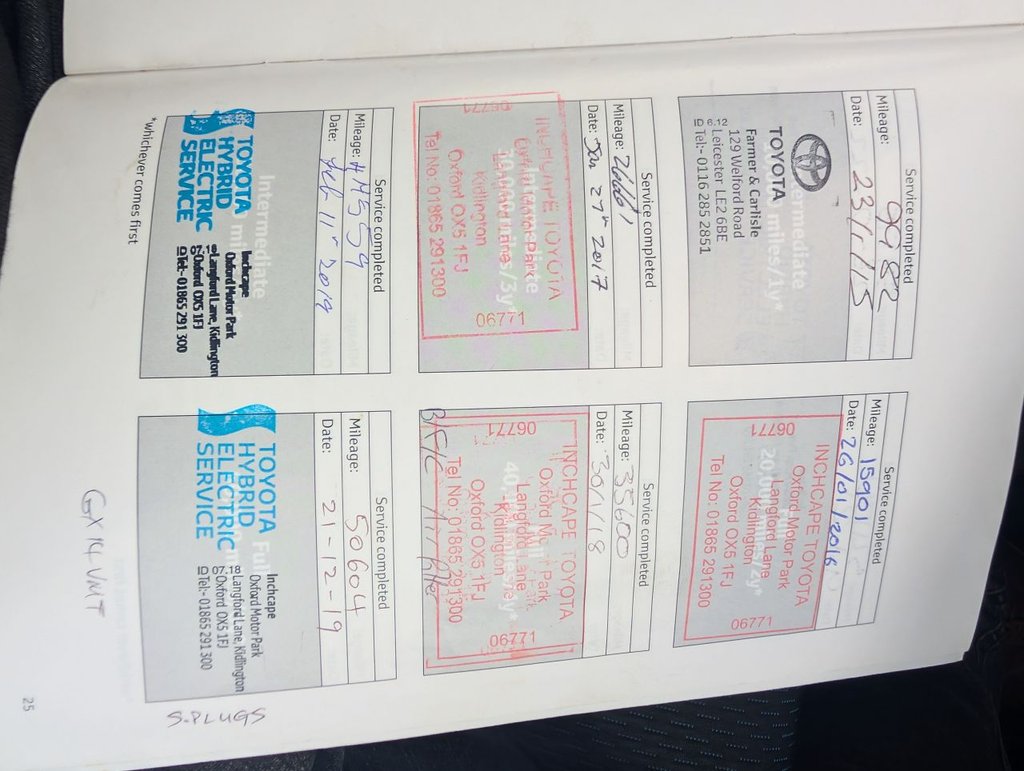 Service completed
Mileage: 9982
Date: 23/1/15
Intermediate
miles/1y*
TOYOTA
Farmer & Carlisle
129 Welford Road
6.12 Leicester LE2 6BE
Tel:- 0116 285 2851
Service completed
Mileage: 15901
Date: 26/01/2016
20,000 miles/2y*
INCHCAPE TOYOTA
Oxford Motor Park
Langford Lane
Kidlington
Oxford OX5 1FJ
Tel No: 01865 291300
06771
06771
Service completed
Mileage:
Date: Jan 27th 2017
Intermediate
miles/3y*
INCHCAPE TOYOTA
Oxford Motor Park
Langford Lane
Kidlington
Oxford OX5 1FJ
Tel No: 01865 291300
06771
06771
Service completed
Mileage: 35600
Date: 30/1/18
INCHCAPE TOYOTA
Oxford Motor Park
Langford Lane
Kidlington
Oxford OX5 1FJ
Tel No: 01865 291300
06771
06771
Air filter
Service completed
Mileage:
Date: Feb 11th 2019
Intermediate
TOYOTA
HYBRID
ELECTRIC
SERVICE
Inchcape
Oxford Motor Park
Langford Lane, Kidlington
Oxford OX5 1FJ
Tel:- 01865 291 300
Service completed
Mileage: 50604
Date: 21-12-19
Full
TOYOTA
HYBRID
ELECTRIC
SERVICE
Inchcape
Oxford Motor Park
18 Langford Lane, Kidlington
07 Oxford OX5 1FJ
Tel:- 01865 291 300
*whichever comes first
S-PLUGS
GX14-VMT
25